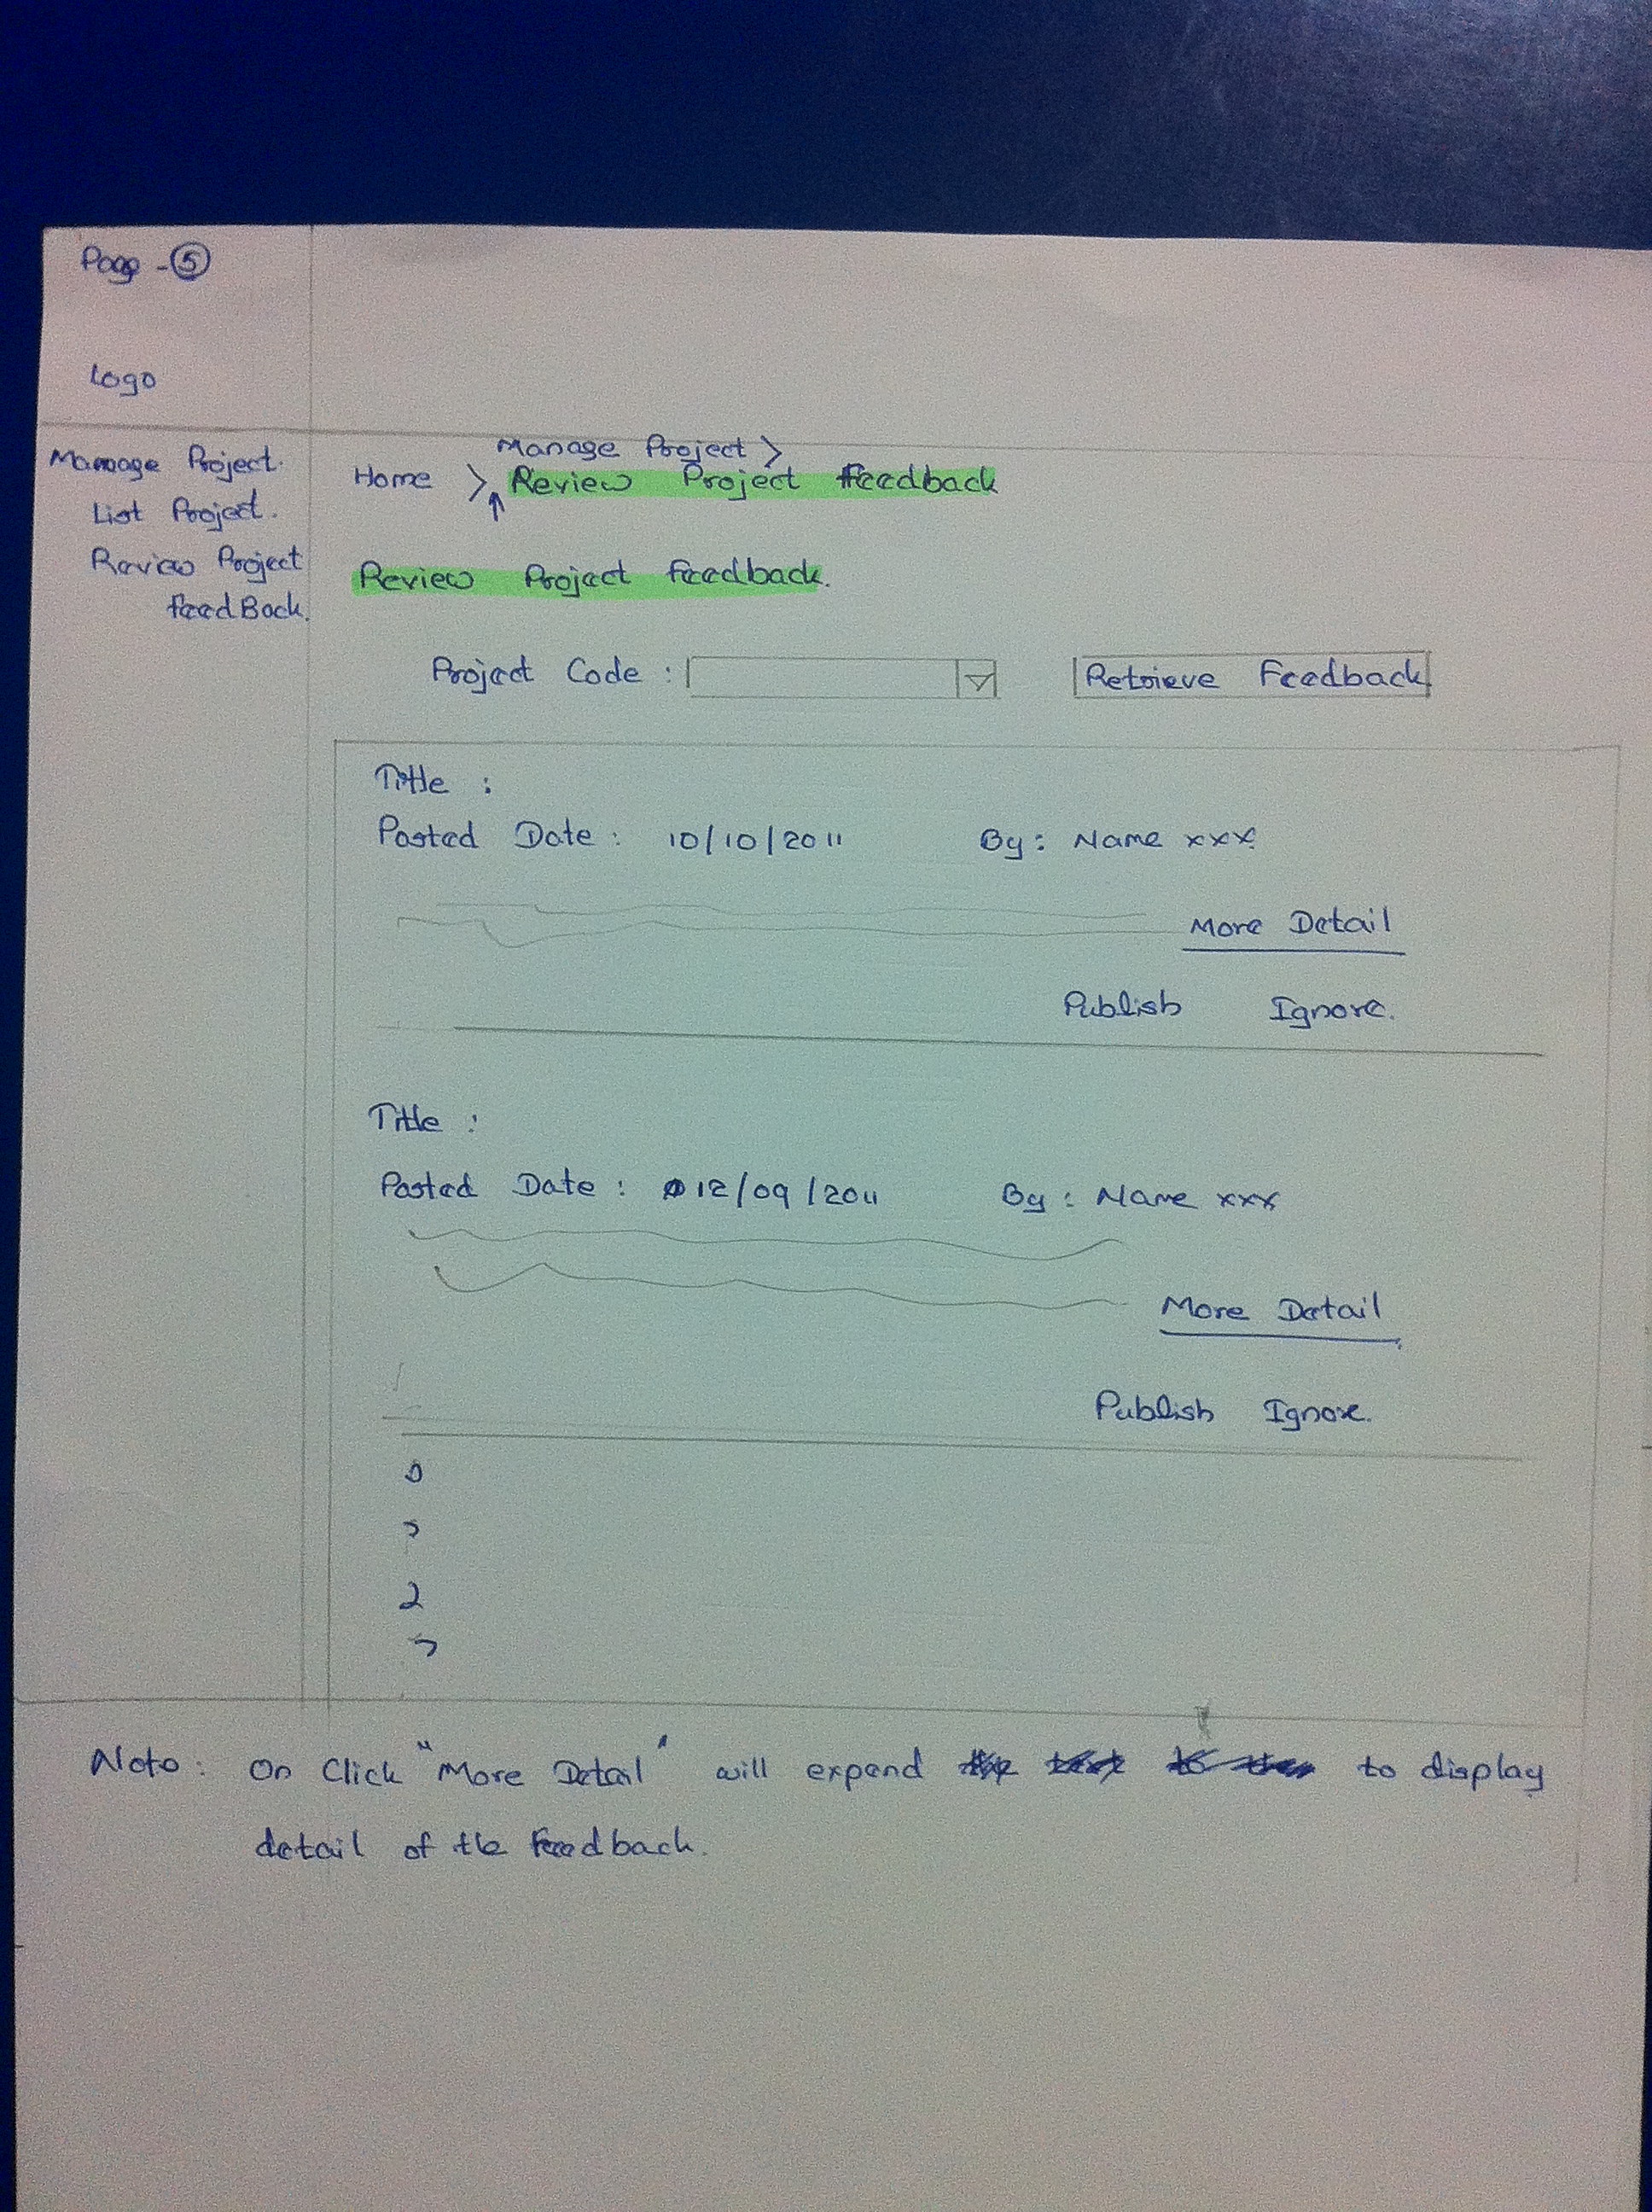 Page - 5
Logo
Manage Project.
List Project.
Review Project
feedBack.
Manage Project >
Home > Review Project Feedback
Review Project Feedback.
Project Code : Retrieve Feedback
Title :
Posted Date : 10/10/2011 By : Name xxx
More Detail
Publish Ignore.
Title :
Posted Date : 12/09/2011 By : Name xxx
More Detail
Publish Ignore.
Note : On Click "More Detail" will expend to display
detail of the feedback.